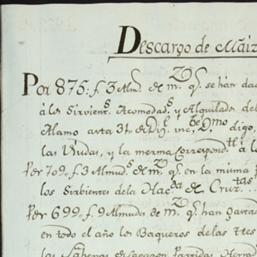 Descargo de Maiz
Por 875,, f. 3 Almd.s de m.z q.e se han dad
à los Sirvien.s Acomodad.s y Alquilado.s del
Alamo asta 31 de digo,
las Viudas, y la merma Correspon.te à l
Por 709,, f. 3 Almud.s de m.z q.e en la misma f
los Sirbientes de la Haz.da de Cruz.tas
Por 699,, f. 9 Almudes de m.z q.e han gasta
en todo el año los Baqueros de las tres
las Partidas Herra